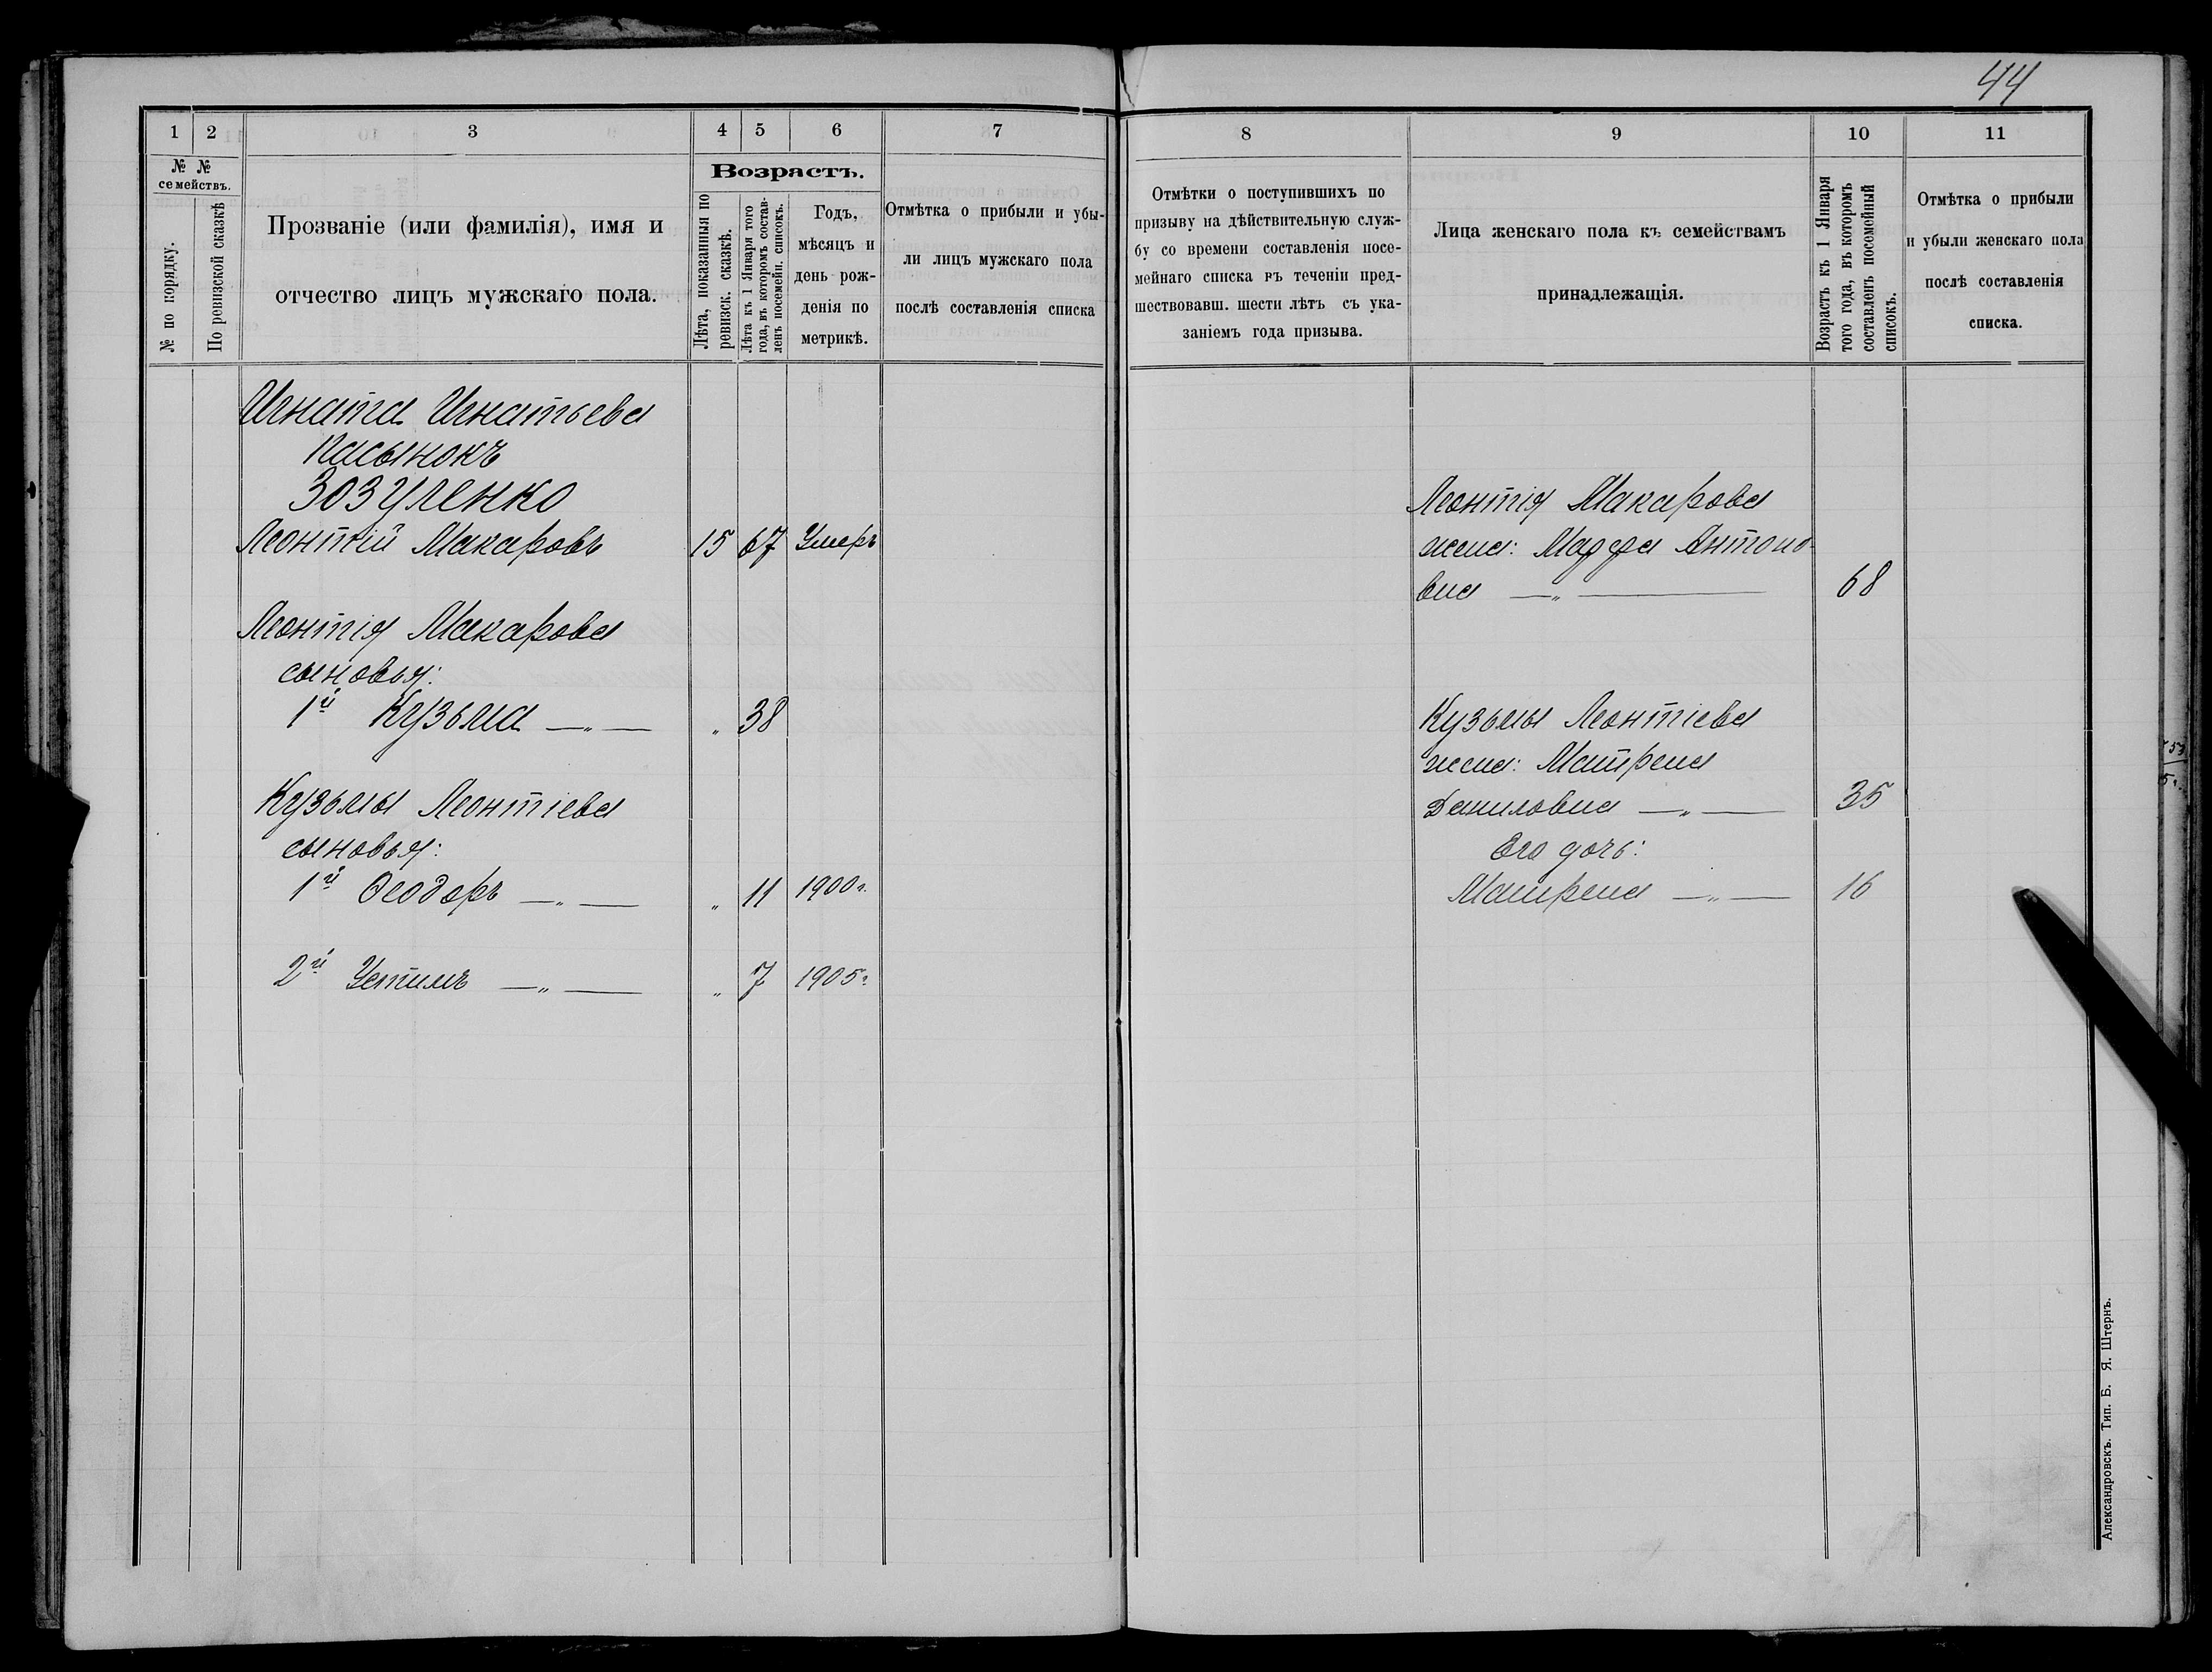 44
1
2
3
4
5
6
7
№ №
семействъ.
№ по порядку.
По ревизской сказкѣ
Прозваніе (или фамилія), имя и
отчество лицъ мужскаго пола.
Возрастъ.
Лѣта, показанныя по
ревизск. сказкѣ.
Лѣта къ 1 Января того
года, въ которомъ состав-
ленъ посемейн. списокъ.
Годъ,
мѣсяцъ и
день рож-
денія по
метрикѣ.
Отмѣтка о прибыли и убы-
ли лицъ мужскаго пола
послѣ составленія списка
Игната Игнатьева
пасынокъ
Зозуленко
Леонтій Макаровъ 15 67 Умеръ
Леонтія Макарова
сыновья:
1й Кузьма —„— „ 38
Кузьмы Леонтіева
сыновья:
1й Ѳеодоръ —„— „ 11 1900г.
2й Устимъ —„— „ 7 1905г.
8
9
10
11
Отмѣтки о поступившихъ по
призыву на дѣйствительную служ-
бу со времени составленія посе-
мейнаго списка въ теченіи пред-
шествовавш. шести лѣтъ съ ука-
заніемъ года призыва.
Лица женскаго пола къ семействамъ
принадлежащія.
Возрастъ къ 1 Января
того года, въ которомъ
составленъ посемейный
списокъ.
Отмѣтка о прибыли
и убыли женскаго пола
послѣ составленія
списка.
Леонтія Макарова
жена: Марфа Антоно-
вна —„— 68
Кузьмы Леонтіева
жена: Матрена
Даниловна —„— 35
Его дочь:
Матрена —„— 16
Александровскъ. Тип. Б. Я. Штернъ.